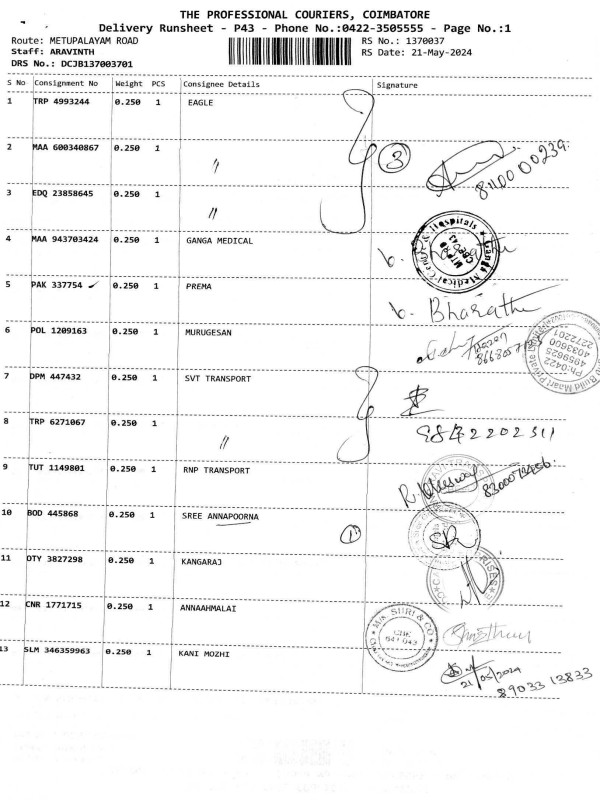 THE PROFESSIONAL COURIERS, COIMBATORE
Delivery Runsheet - P43 - Phone No.:0422-3505555 - Page No.:1
Route: METUPALAYAM ROAD RS No.: 1370037
Staff: ARAVINTH RS Date: 21-May-2024
DRS No.: DCJB137003701
S No Consignment No Weight PCS Consignee Details Signature
1 TRP 4993244 0.250 1 EAGLE
2 MAA 600340867 0.250 1 〃 3
3 EDQ 23858645 0.250 1 〃
4 MAA 943703424 0.250 1 GANGA MEDICAL
5 PAK 337754 0.250 1 PREMA b. Bharathi
6 POL 1209163 0.250 1 MURUGESAN
7 DPM 447432 0.250 1 SVT TRANSPORT
8 TRP 6271067 0.250 1 〃
9 TUT 1149801 0.250 1 RNP TRANSPORT
10 BOD 445868 0.250 1 SREE ANNAPOORNA 1
11 OTY 3827298 0.250 1 KANGARAJ
12 CNR 1771715 0.250 1 ANNAAHMALAI
13 SLM 346359963 0.250 1 KANI MOZHI 21/05/2024
89033 13833